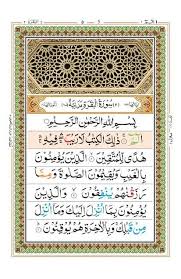 سُوْرَةُ الْبَقَرَةِ مَدَنِيَّةٌ
بِسْمِ اللّٰهِ الرَّحْمٰنِ الرَّحِيْمِ
الٓمّٓ ذٰلِكَ الْكِتٰبُ لَا رَيْبَ فِيْهِ
هُدًى لِّلْمُتَّقِيْنَ الَّذِيْنَ يُؤْمِنُوْنَ
بِالْغَيْبِ وَيُقِيْمُوْنَ الصَّلٰوةَ وَمِمَّا
رَزَقْنٰهُمْ يُنْفِقُوْنَ وَالَّذِيْنَ
يُؤْمِنُوْنَ بِمَآ اُنْزِلَ اِلَيْكَ وَمَآ اُنْزِلَ
مِنْ قَبْلِكَ وَبِالْاٰخِرَةِ هُمْ يُوْقِنُوْنَ